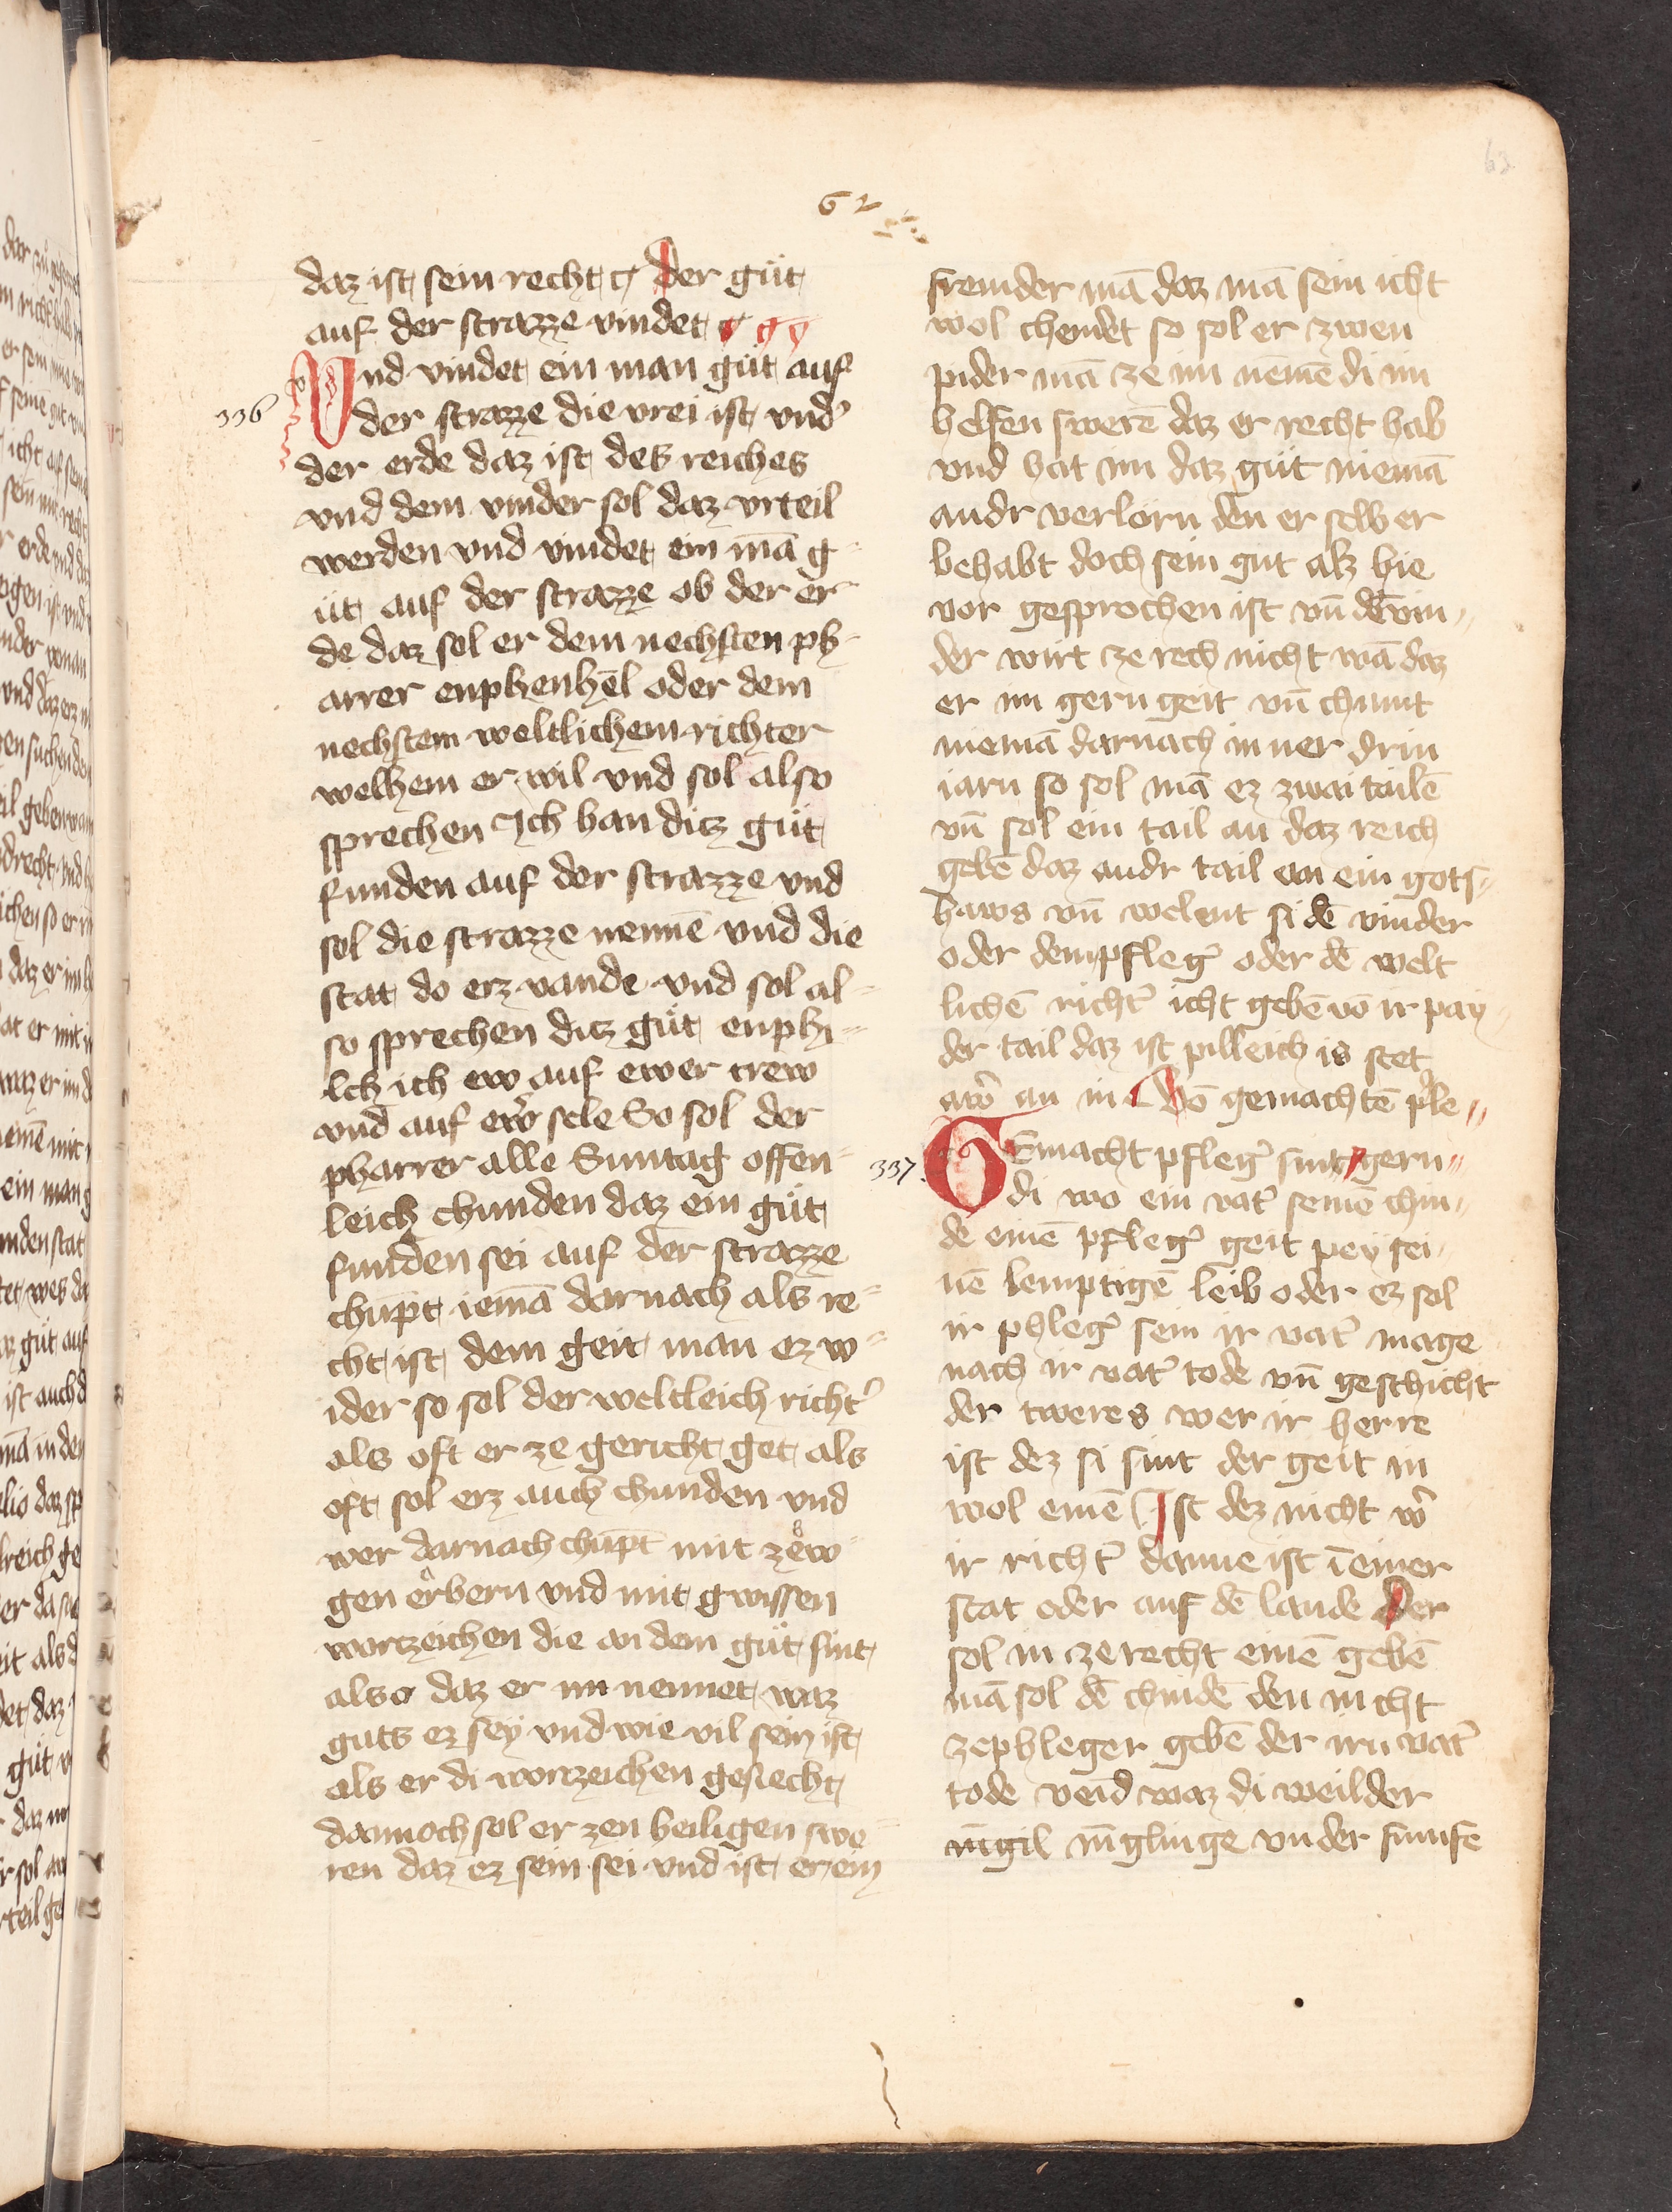 62
63
daz ist sein recht der gůt
auf der strazze vindet
Vnd vindet ein man gůt auf
336
der strazze die vrei ist vnd
der erde daz ist des reiches
vnd dem vinder sol daz vrteil
werden vnd vindet ein mā g-
ůt auf der strazze ob der er
de daz sol er dem nechsten ph-
arrer enphenhēl oder dem
nechstem weltlichem richter
welhem er wil vnd sol also
sprechen Ich han ditz gůt
funden auf der strazze vnd
sol die strazze nennē vnd die
stat do erz vande vnd sol al-
so sprechen ditz gůt enphi-
lch ich ew auf ewer trew
vnd auf ewr̄ sele So sol der
pharrer alle Suntag offen-
leich chunden daz ein gůt
funden sei auf der strazze
chūpt iemā darnach als re-
cht ist dem geit man ez w-
ider so sol der weltleich richt᾽
als oft er ze gericht get als
oft sol erz auch chunden vnd
wer darnach chūpt mit zew-
gen erbern vnd mit gwissen
wortzeichen die an dem gůt sint
also daz er im nennet waz
guts ez sey vnd wie vil sein ist
als er di wortzeichen geslecht
dannoch sol er zen heiligen swe-
ren daz ez sein sei vnd ist er ein
fremder mā daz mā sein icht
wol chendet so sol er zwen
pider mā ze im nēmē di im
helfen swerē daz er recht hab
vnd hat im daz gůt niemā
andr verlorn den er selb er
behabt doch sein gut alz hie
vor gesprochen ist vn̄ dē vin-
der wirt ze rech nicht wā daz
er im gern geit vn̄ chumt
niemā darnach inner drin
iarn so sol mā ez zwai tailē
vn̄ sol ein tail an daz reich
gebē daz andr tail an ein gots-
haws vn̄ welent si dē vinder
oder dem pfleg᾽ oder dē welt
lichē richt᾽ icht gebē vō ir pay
der tail daz ist pilleich is stet
awr̄ an in Vō gemachtē p᾽le
337
GEmacht pfleg᾽ sint gern
di wo ein vat᾽ seinē chin-
de einē pfleg᾽ geit pey sei-
nē lemptigē leib oder ez sol
ir phleg᾽ sein ir vat᾽ mage
nach ir vat᾽ tode vn̄ geschicht
der tweres wer ir herre
ist dez si sint der geit in
wol einē Ist dez nicht wr̄
ir richt᾽ danne ist ī einer
stat oder auf dē lande Der
sol in ze recht einē gebē
mā sol dē chindē den nicht
ze phleger gebē der irn vat᾽
tode veīd waz di weil der
īugil īuglinge vnder funfe